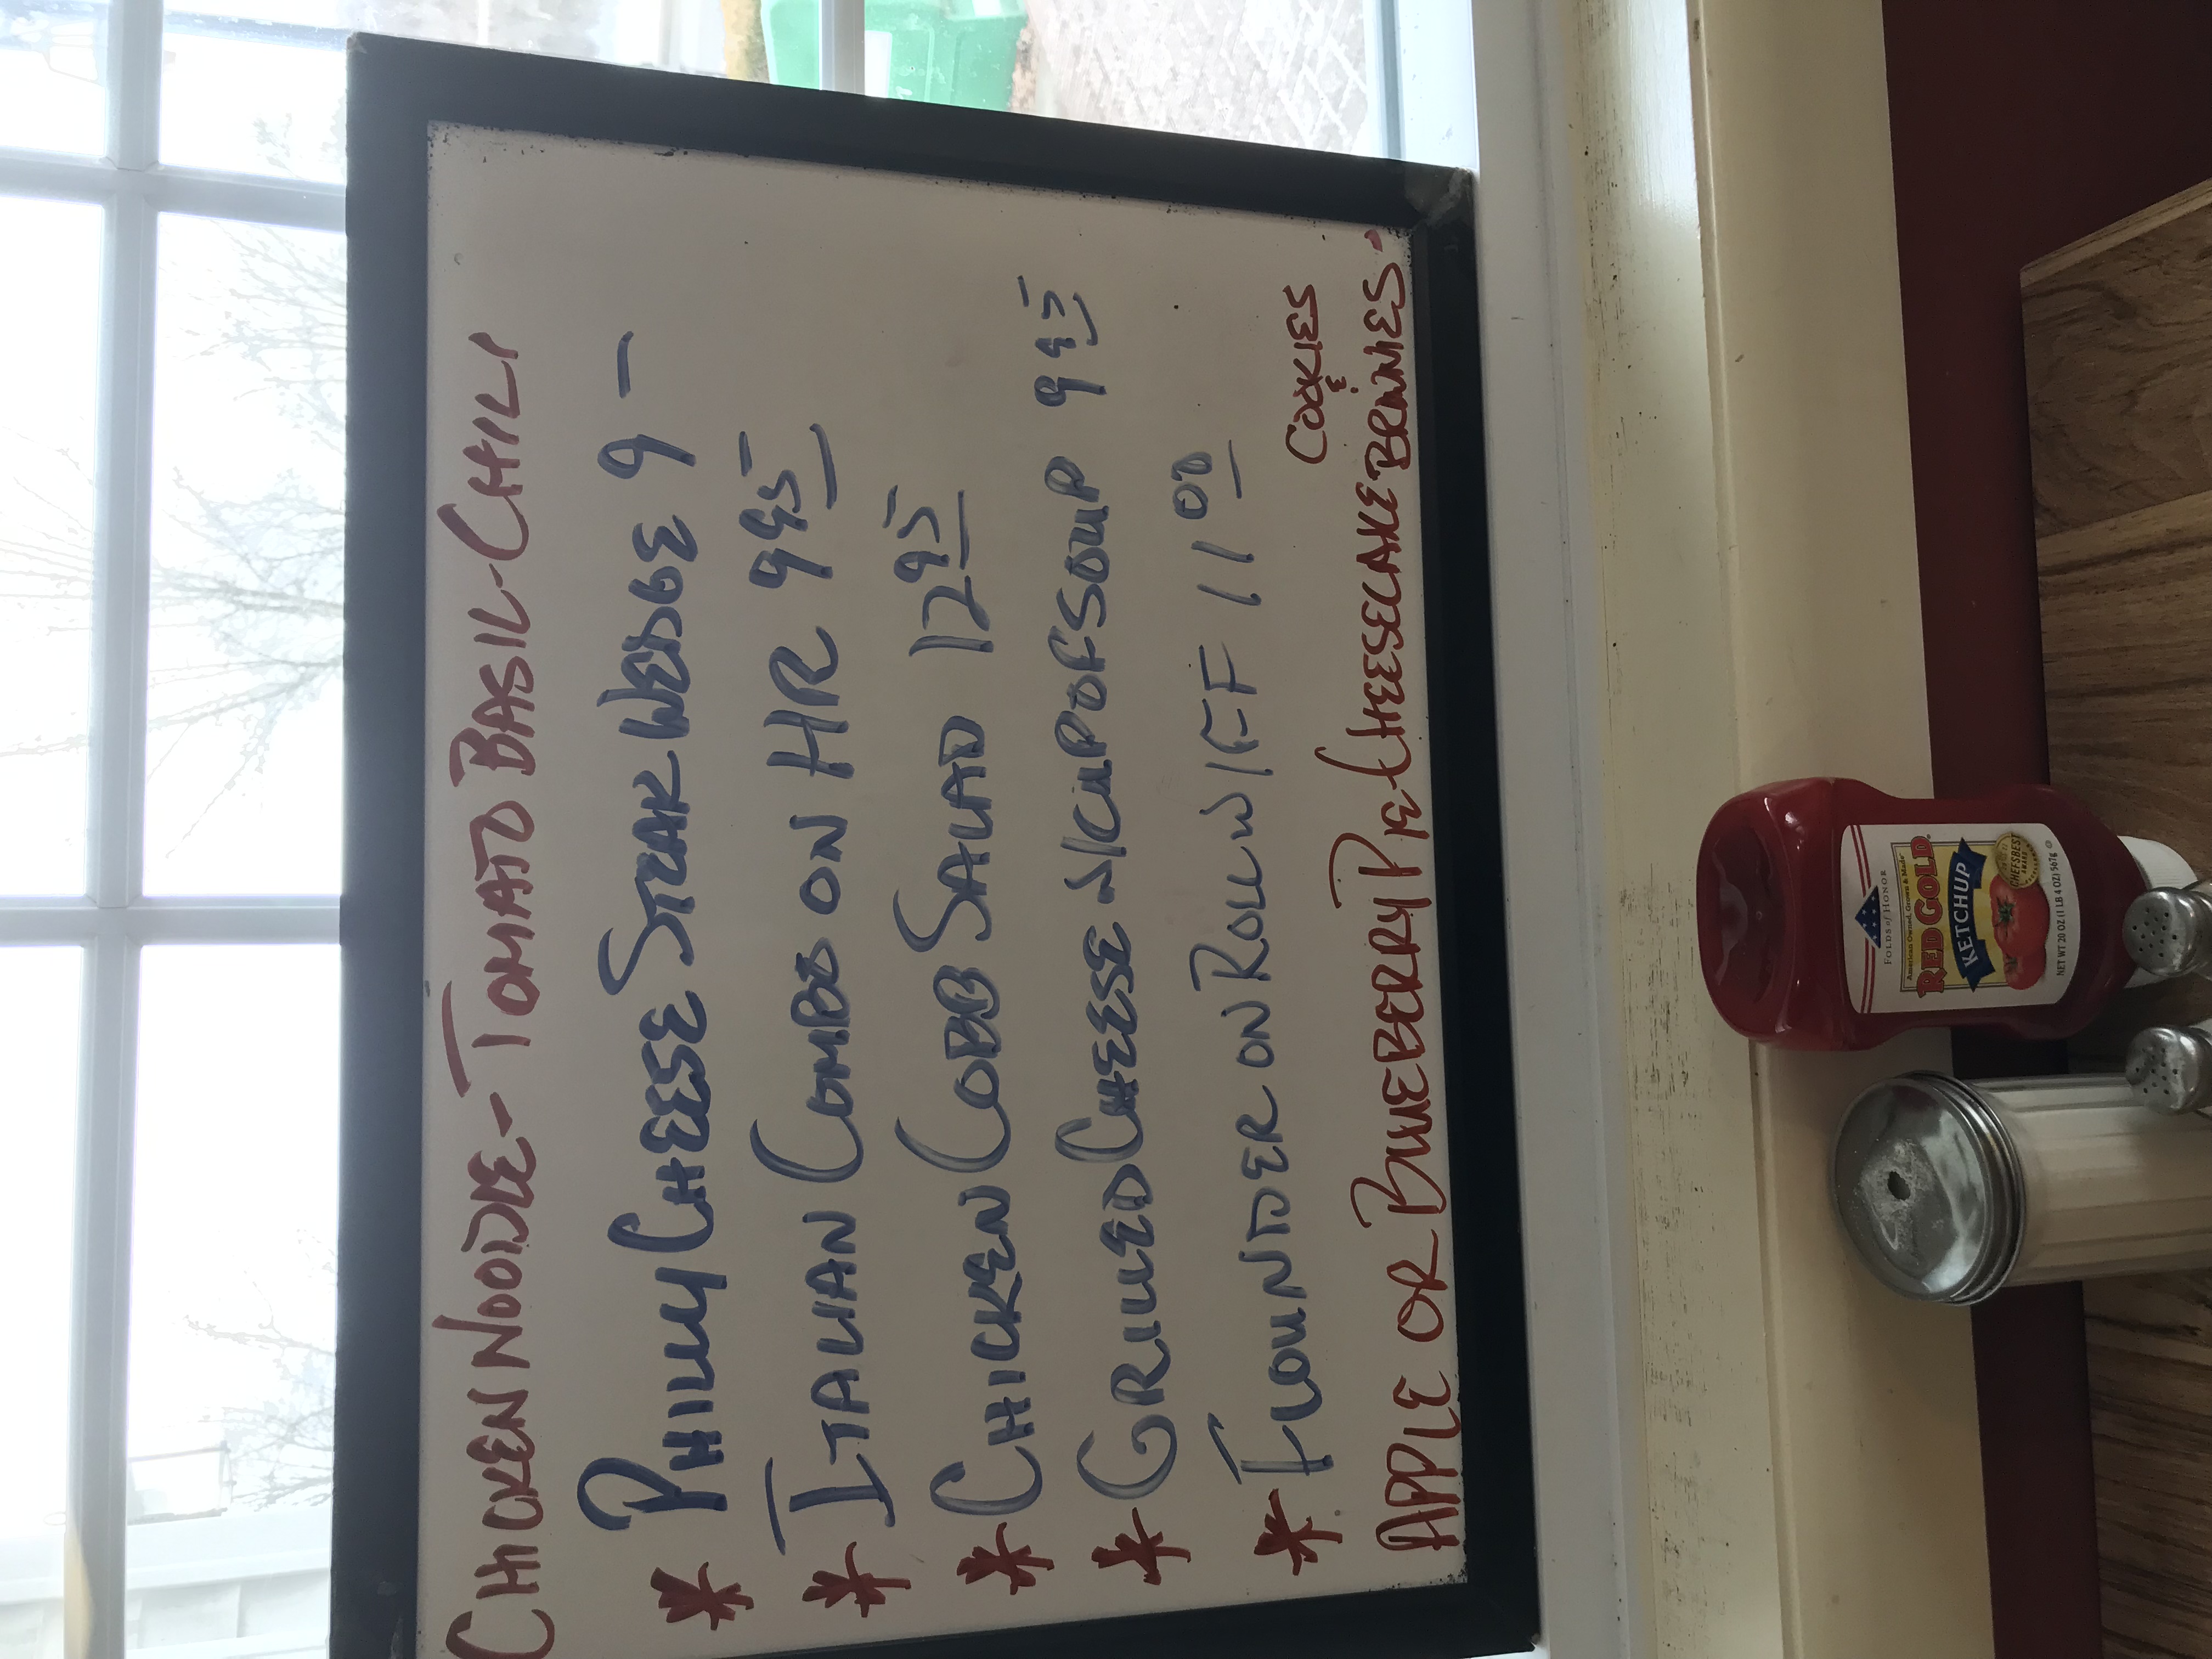 CHICKEN NOODLE - TOMATO BASIL - CHILI
* PHILLY CHEESE STEAK WEDGE 9 -
* ITALIAN COMBO ON HR 9 95
* CHICKEN COBB SALAD 12 95
* GRILLED CHEESE w/CUP OF SOUP 9 95
* FLOUNDER ON ROLL w/FF 11 00
COOKIES
&
APPLE OR BLUEBERRY PIE CHEESECAKE BROWNIES -
FOLDS of HONOR
American Owned, Grown & Made
RED GOLD
KETCHUP
CHEFSBEST
NET WT 20 OZ (1 LB 4 OZ) 567g